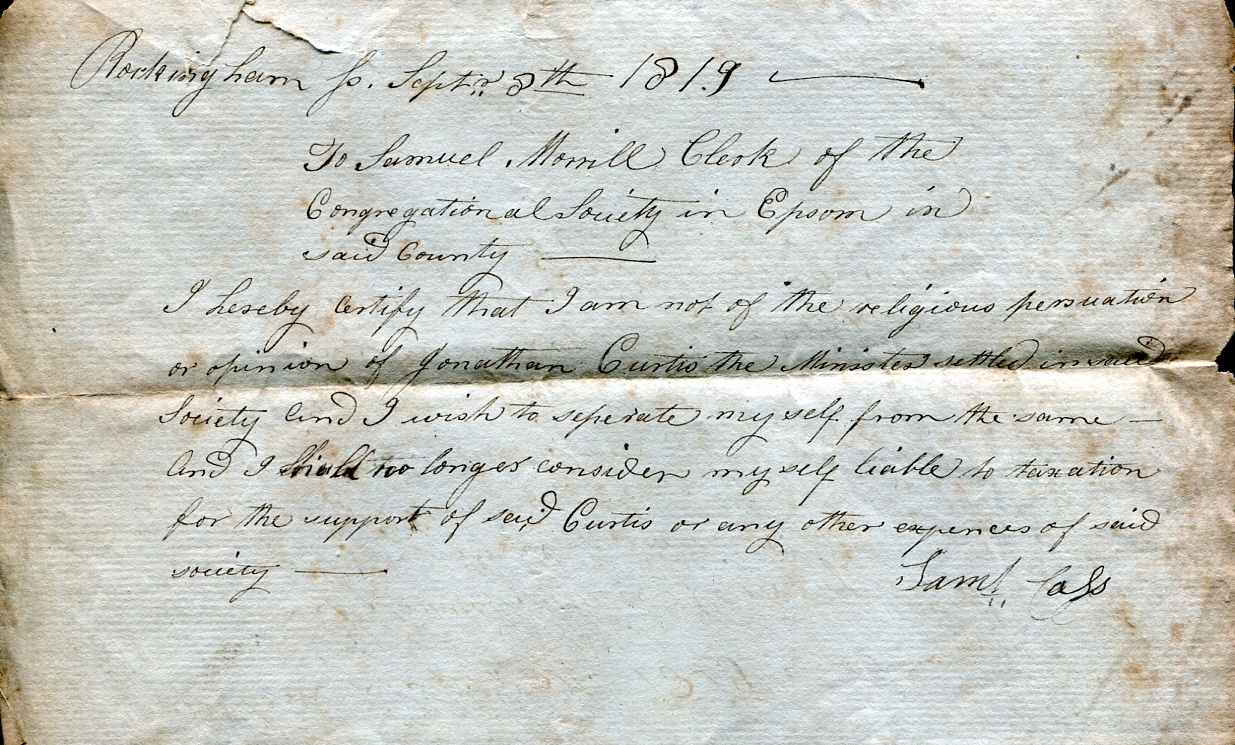 Rockingham Ss. Septr. 8th 1819
To Samuel Morrill Clerk of the
Congregational Society in Epsom in
said County
I hereby certify that I am not of the religious persuation
or opinion of Jonathan Curtis the Minister settled in said
Society and I wish to seperate my self from the same —
And I shall no longer consider my self liable to taxation
for the support of said Curtis or any other expences of said
society
Saml. Cass